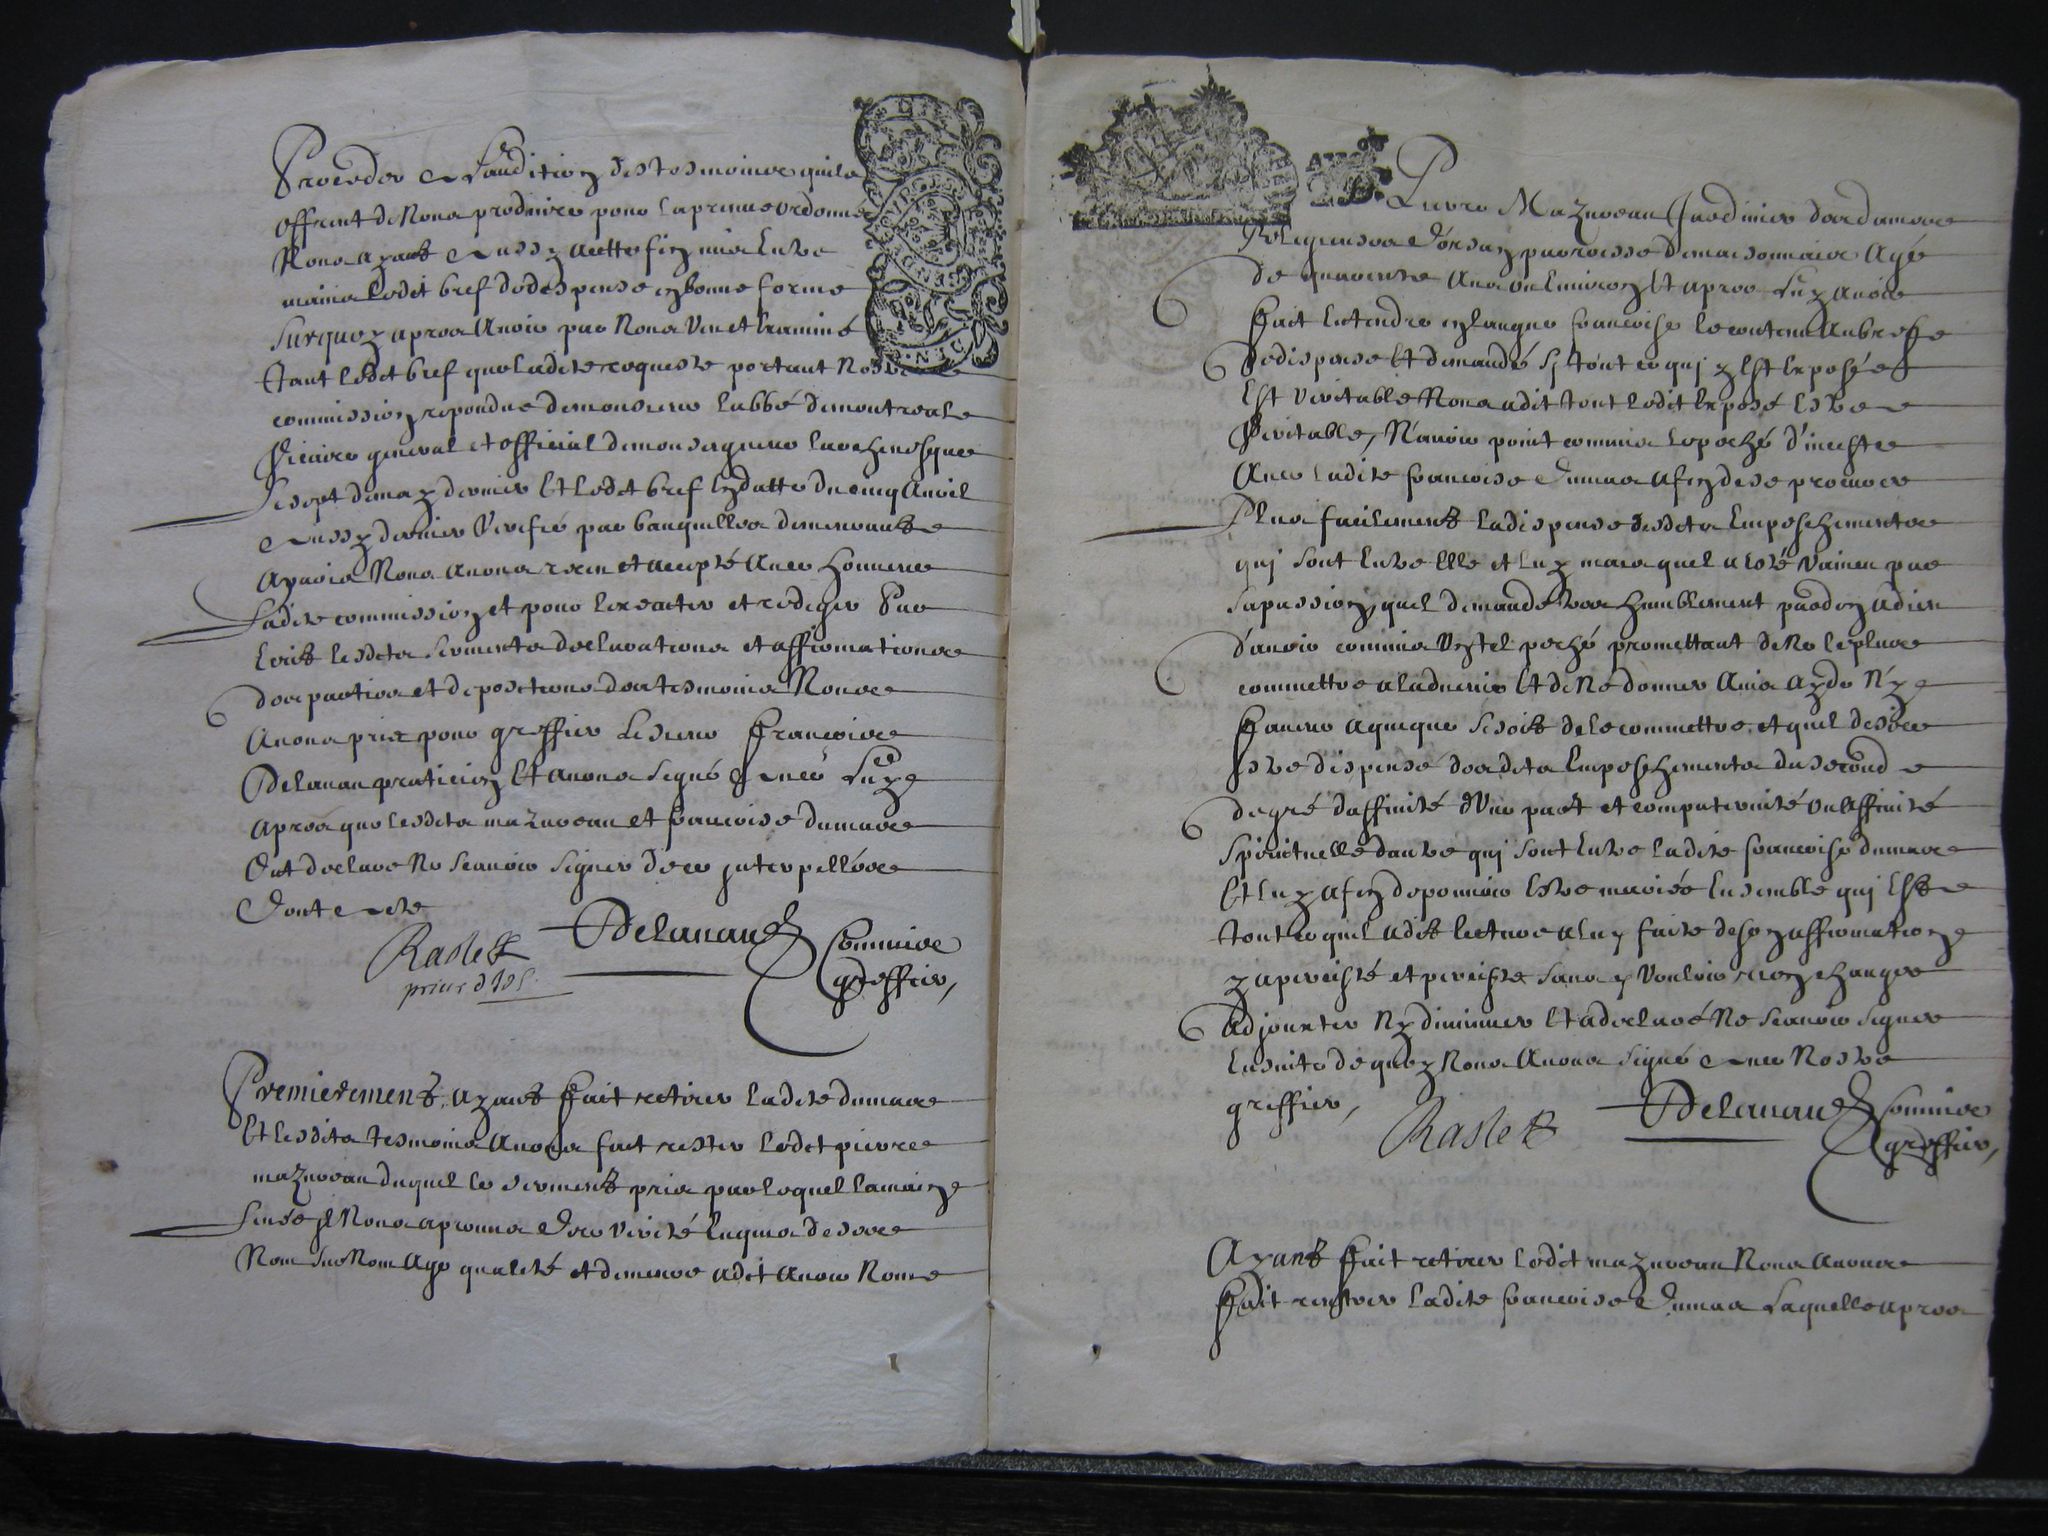 Proceder a Laudition des tesmoins quils
offrent de Nous produire pour la preuve ordonné
Nous ayant aussy acette fin mis Entre
mains ledit bref de despense en bonne forme
Surquoy apres Avoir par Nous Veu et Examiné
tant ledit bref que ladite requeste portant Nostre
commission repondue de monsieur labbé de montreal
Vicaire general et official de monseigneur larchevesque
Le sept de may dernier Et ledit bref en datte du cinq Avril
aussy dernier Verifié par banquiers
Nous avons receu et accepté Avec honneur
Ladite commission et pour lexecuter et rediger Par
Ecrit lesdits serments declarations et affirmations
des parties et depositions des tesmoins Nous
Avons pris pour greffier Le sieur François
Delanau praticien Et avons signé avec Luy
apres que lesdits maznveau et francoise dumas
Ont declaré Ne scavoir signer de ce interpellés
Dont acte
Raslet Delanau Commis
prieur greffier,
Premierement, ayant fait retirer ladite dumas
Et lesdits tesmoins Avons fait rester ledit pierre
maznveau duquel le serment pris par lequel la main
Levée il Nous a promis Dire verité Enquis de son
Nom surNom Age qualité et demeure a dit avoir Nom
Pierre Maznveau Jardinier des dames
Religieuses d'orsan parroisse de maisonnais Agé
de quarente Ans ou Environ Et apres Luy Avoir
fait Entendre en langue francoise le contenu Au bref
de dispense Et demandé si tout ce qui y Est Exposé
Est Veritable Nous a dit tout ledit Exposé Estre
Veritable, N'avoir point commis le peché d'inceste
Avec ladite francoise Dumas afin de se procurer
Plus facilement la dispense desdits Empeschements
qui sont Entre Elle et Luy mais quel a esté vaincu par
sa passion, quel demande tres humblement pardon a dieu
d'avoir commis Un tel peché promettant de Ne le plus
commettre a ladvenir Et de Ne donner Avis ayde Ny
faveur a quique ce soit de le commettre, et quil desire
Estre dispensé desdits Empeschements du second
degré daffinité d'Une part et compaternité ou Affinité
Spirituelle dautre qui sont Entre ladite francoise dumas
Et Luy afin de pouvoir Estre mariés Ensemble qui Est
tout ce quil a dit lecture a luy faite de son affirmation
y a persisté et persiste sans y Vouloir rien changer
adjouxter Ny diminuer Et a declaré Ne scavoir signer
Ensuite de quoy Nous Avons signé avec Nostre
greffier, Raslet Delanau Commis
greffier,
Ayant fait retirer ledit maznveau Nous avons
fait rentrer ladite francoise Dumas Laquelle apres